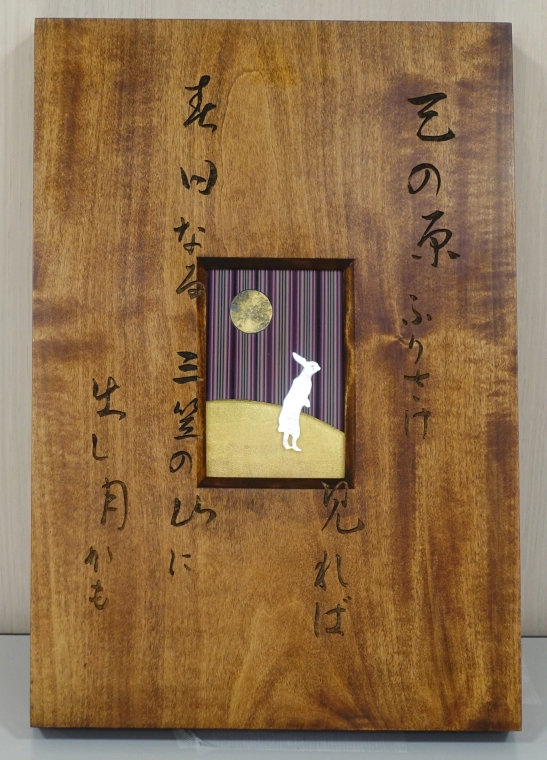 天の原ふりさけ
見れば
春日なる三笠の山に
出し月かも